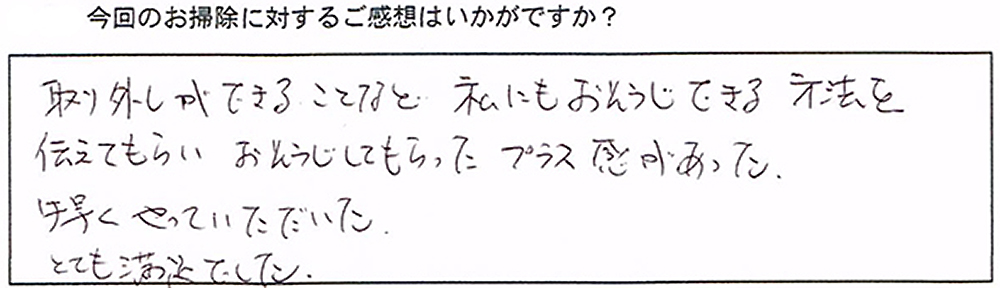 今回のお掃除に対するご感想はいかがですか？
取り外しができることなど 私にもおそうじできる 方法を
伝えてもらい おそうじしてもらった プラス感があった.
手早く やっていただいた.
とても満足でした.